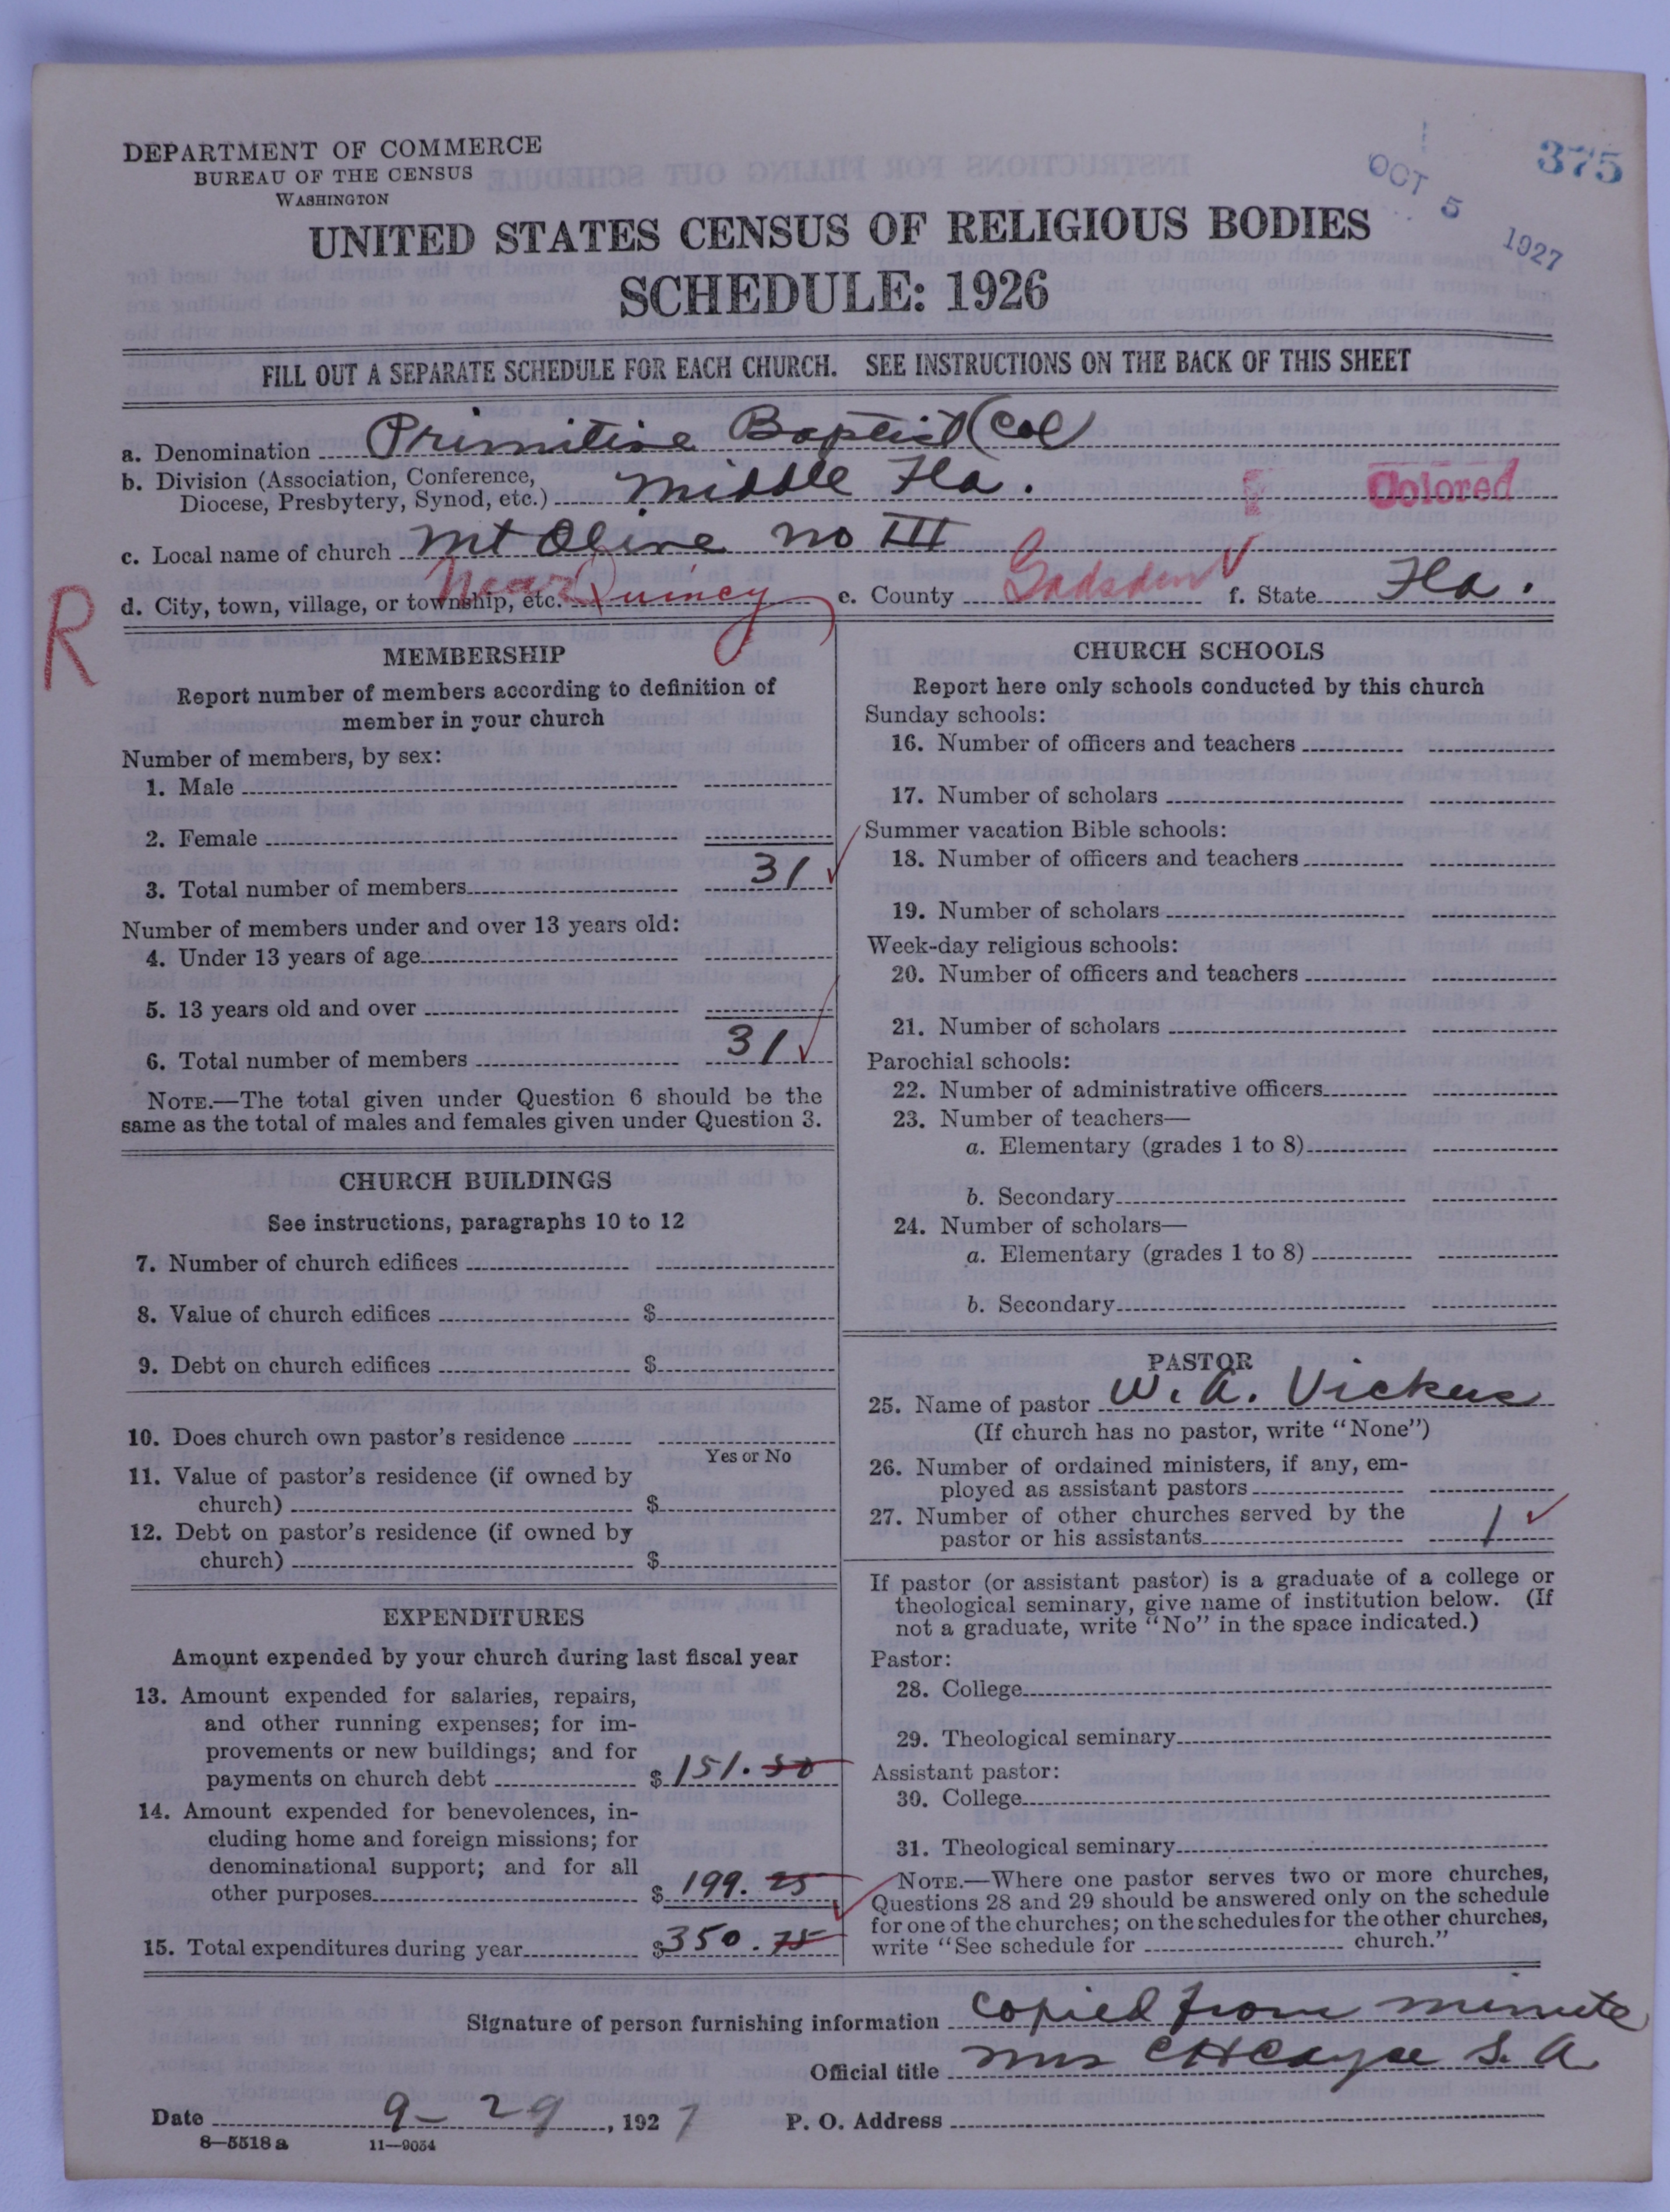 DEPARTMENT OF COMMERCE
BUREAU OF THE CENSUS
WASHINGTON
OCT 5 1927
375
UNITED STATES CENSUS OF RELIGIOUS BODIES
SCHEDULE: 1926
FILL OUT A SEPARATE SCHEDULE FOR EACH CHURCH. SEE INSTRUCTIONS ON THE BACK OF THIS SHEET
a. Denomination Primitive Baptist (Col)
b. Division (Association, Conference,
Diocese, Presbytery, Synod, etc.) Middle Fla. Colored
c. Local name of church Mt Olive no III
R
d. City, town, village, or township, etc. Near Quincy e. County Gadsden f. State Fla.
MEMBERSHIP
Report number of members according to definition of
member in your church
Number of members, by sex:
1. Male
2. Female
3. Total number of members 31
Number of members under and over 13 years old:
4. Under 13 years of age
5. 13 years old and over
6. Total number of members 31
NOTE.—The total given under Question 6 should be the
same as the total of males and females given under Question 3.
CHURCH BUILDINGS
See instructions, paragraphs 10 to 12
7. Number of church edifices
8. Value of church edifices $
9. Debt on church edifices $
10. Does church own pastor's residence
Yes or No
11. Value of pastor's residence (if owned by
church) $
12. Debt on pastor's residence (if owned by
church) $
EXPENDITURES
Amount expended by your church during last fiscal year
13. Amount expended for salaries, repairs,
and other running expenses; for im-
provements or new buildings; and for
payments on church debt $ 151.50
14. Amount expended for benevolences, in-
cluding home and foreign missions; for
denominational support; and for all
other purposes $ 199.25
15. Total expenditures during year $ 350.75
CHURCH SCHOOLS
Report here only schools conducted by this church
Sunday schools:
16. Number of officers and teachers
17. Number of scholars
Summer vacation Bible schools:
18. Number of officers and teachers
19. Number of scholars
Week-day religious schools:
20. Number of officers and teachers
21. Number of scholars
Parochial schools:
22. Number of administrative officers
23. Number of teachers—
a. Elementary (grades 1 to 8)
b. Secondary
24. Number of scholars—
a. Elementary (grades 1 to 8)
b. Secondary
PASTOR
25. Name of pastor W. A. Vickers
(If church has no pastor, write "None")
26. Number of ordained ministers, if any, em-
ployed as assistant pastors
27. Number of other churches served by the
pastor or his assistants 1
If pastor (or assistant pastor) is a graduate of a college or
theological seminary, give name of institution below. (If
not a graduate, write "No" in the space indicated.)
Pastor:
28. College
29. Theological seminary
Assistant pastor:
30. College
31. Theological seminary
NOTE.—Where one pastor serves two or more churches,
Questions 28 and 29 should be answered only on the schedule
for one of the churches; on the schedules for the other churches,
write "See schedule for church."
Signature of person furnishing information copied from minute
Official title Mrs C H Cayce S. A
Date 9-29, 1927 P. O. Address
8—5518a 11—9054